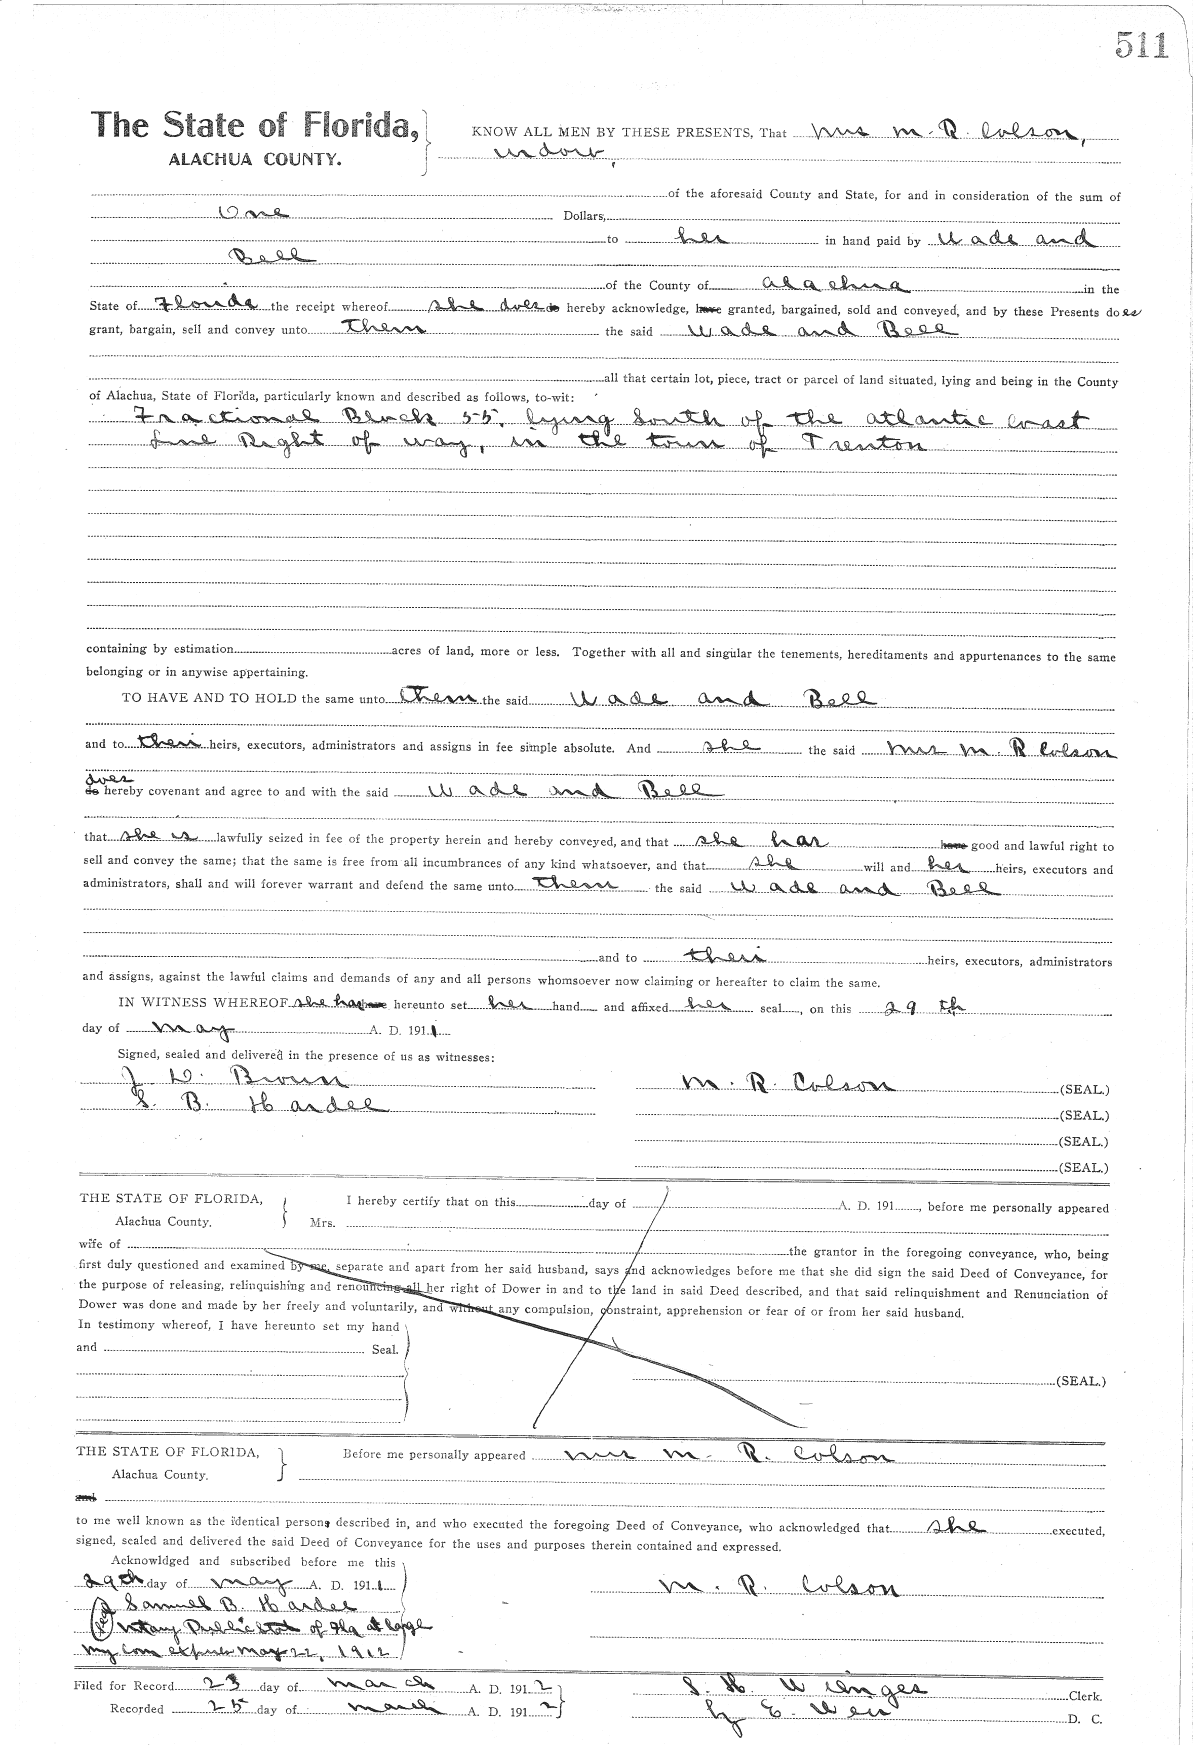 511
The State of Florida,
ALACHUA COUNTY.
KNOW ALL MEN BY THESE PRESENTS, That Mrs M. R. Colson,
widow,
of the aforesaid County and State, for and in consideration of the sum of
One Dollars,
to her in hand paid by Wade and
Bell
of the County of Alachua in the
State of Florida the receipt whereof she does do hereby acknowledge, have granted, bargained, sold and conveyed, and by these Presents does
grant, bargain, sell and convey unto them the said Wade and Bell
all that certain lot, piece, tract or parcel of land situated, lying and being in the County
of Alachua, State of Florida, particularly known and described as follows, to-wit:
Fractional Block 55, lying South of the Atlantic Coast
Line Right of way, in the town of Trenton
containing by estimation acres of land, more or less. Together with all and singular the tenements, hereditaments and appurtenances to the same
belonging or in anywise appertaining.
TO HAVE AND TO HOLD the same unto them the said Wade and Bell
and to their heirs, executors, administrators and assigns in fee simple absolute. And she the said Mrs M R Colson
does
do hereby covenant and agree to and with the said Wade and Bell
that she is lawfully seized in fee of the property herein and hereby conveyed, and that she has have good and lawful right to
sell and convey the same; that the same is free from all incumbrances of any kind whatsoever, and that she will and her heirs, executors and
administrators, shall and will forever warrant and defend the same unto them the said Wade and Bell
and to their heirs, executors, administrators
and assigns, against the lawful claims and demands of any and all persons whomsoever now claiming or hereafter to claim the same.
IN WITNESS WHEREOF she has have hereunto set her hand and affixed her seal, on this 29th
day of May A. D. 1911
Signed, sealed and delivered in the presence of us as witnesses:
J. D. Brown
M. R. Colson (SEAL.)
S. B. Hardee
(SEAL.)
(SEAL.)
(SEAL.)
THE STATE OF FLORIDA,
Alachua County.
I hereby certify that on this day of A. D. 191 , before me personally appeared
Mrs.
wife of the grantor in the foregoing conveyance, who, being
first duly questioned and examined by me, separate and apart from her said husband, says and acknowledges before me that she did sign the said Deed of Conveyance, for
the purpose of releasing, relinquishing and renouncing all her right of Dower in and to the land in said Deed described, and that said relinquishment and Renunciation of
Dower was done and made by her freely and voluntarily, and without any compulsion, constraint, apprehension or fear of or from her said husband.
In testimony whereof, I have hereunto set my hand
and Seal.
(SEAL.)
THE STATE OF FLORIDA,
Alachua County.
Before me personally appeared Mrs M. R. Colson
and
to me well known as the identical person, described in, and who executed the foregoing Deed of Conveyance, who acknowledged that she executed,
signed, sealed and delivered the said Deed of Conveyance for the uses and purposes therein contained and expressed.
Acknowldged and subscribed before me this
29th day of May A. D. 1911
M. R. Colson
Samuel B. Hardee
Notary Public State of Fla at large
My Com expires May 22, 1912
Filed for Record 23 day of March A. D. 1912
S. H. Wienges Clerk.
Recorded 25 day of March A. D. 1912
by E. D. C.